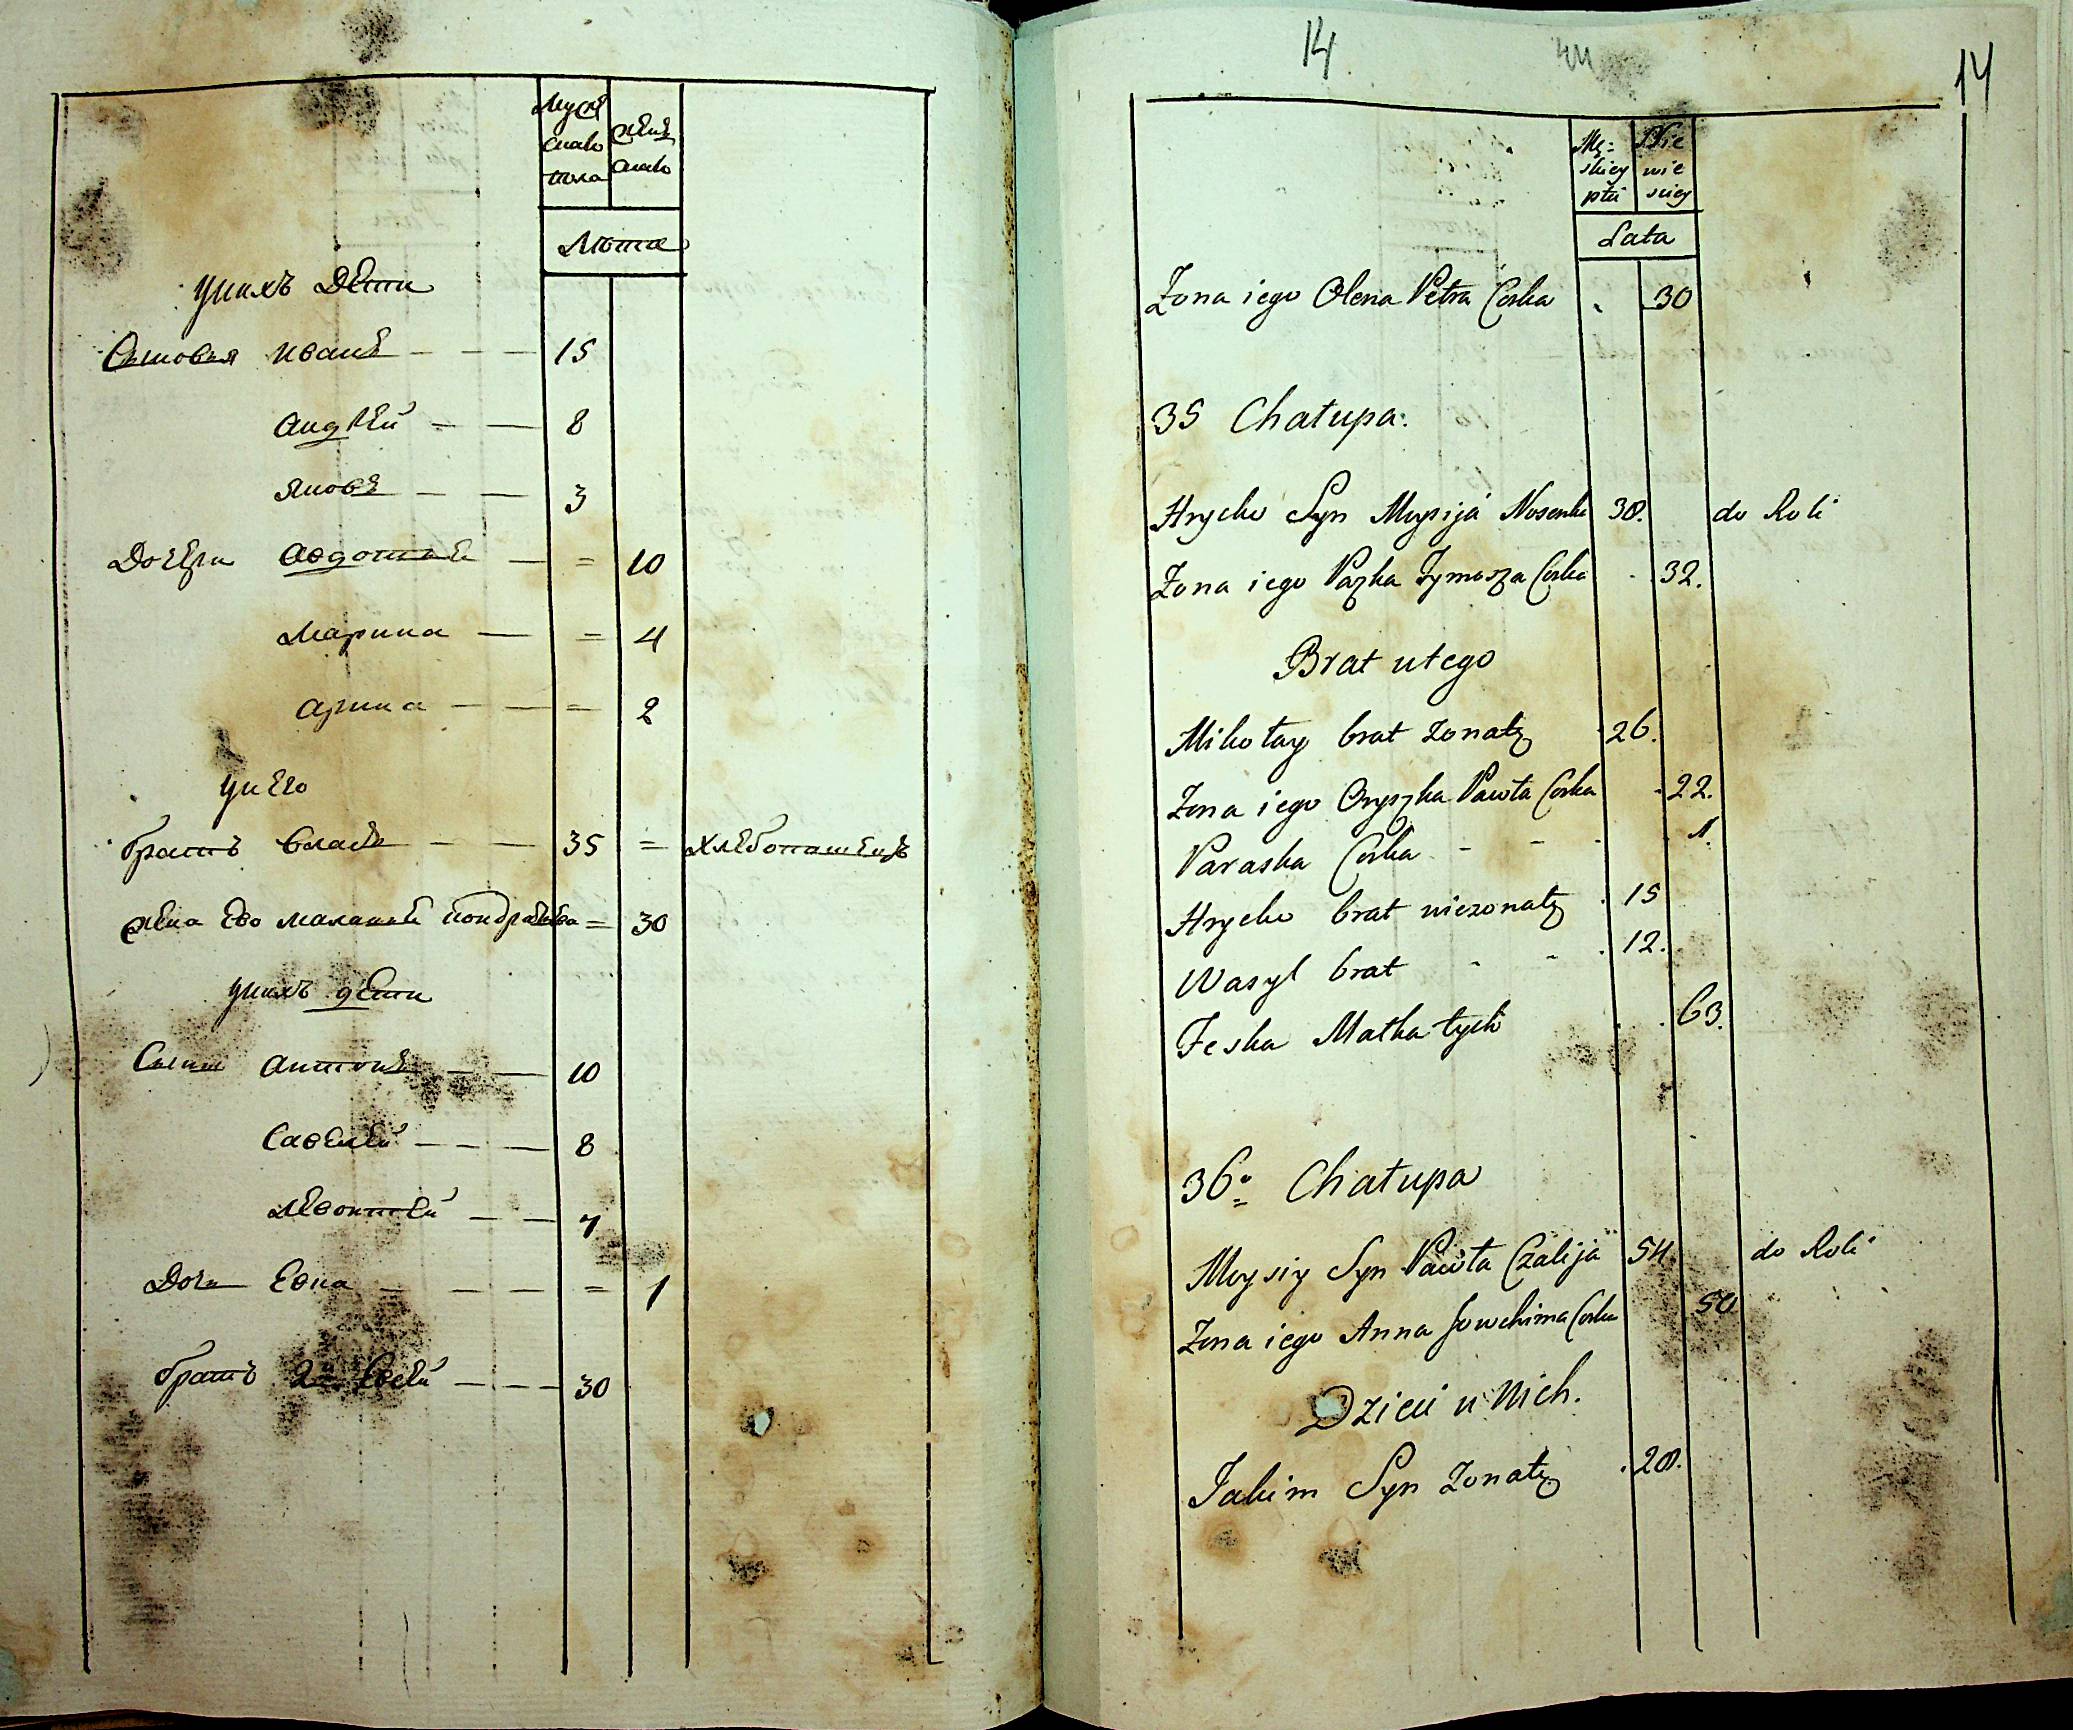 Муж
скаво
пола
жен
скаво
Лѣта
У нихъ дѣти
Сыновья иванъ 15
андрѣй 8
яковъ 3
Дочери авдотья = 10
марина = 4
арина = 2
У нево
братъ власъ 35 = хлебопашецъ
жена ево маланья кондратьева = 30
У нихъ дѣти
Сыны антонъ 10
савелей 8
левонтей 7
Дочь евва = 1
братъ 2й евсей 30
14
14
Mę=
skiey
płci
Nie
wie
sciey
Lata
Zona iego Olena Petra Corka 30
35 Chałupa:
Hrycko Syn Moysija Nosenko 38. do Roli
Zona iego Pazka Tymosza Corka 32.
Brat u tego
Mikołay brat zonaty 26.
Zona iego Oryszka Pawła Corka 22.
Paraska Corka 1.
Hrycko brat niezonaty 15
Wasyl brat 12.
Feska Matka tych 63.
36. Chałupa
Moysiy Syn Pawła Czalija 54. do Roli
Zona iego Anna Jowchima Corka 50
Dzieci u nich.
Jakim Syn zonaty 28.